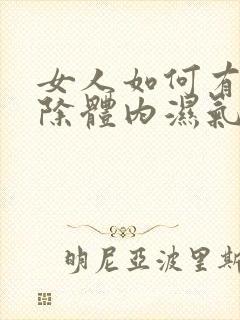 女人如何有
除體內濕氣
明尼亞波里斯